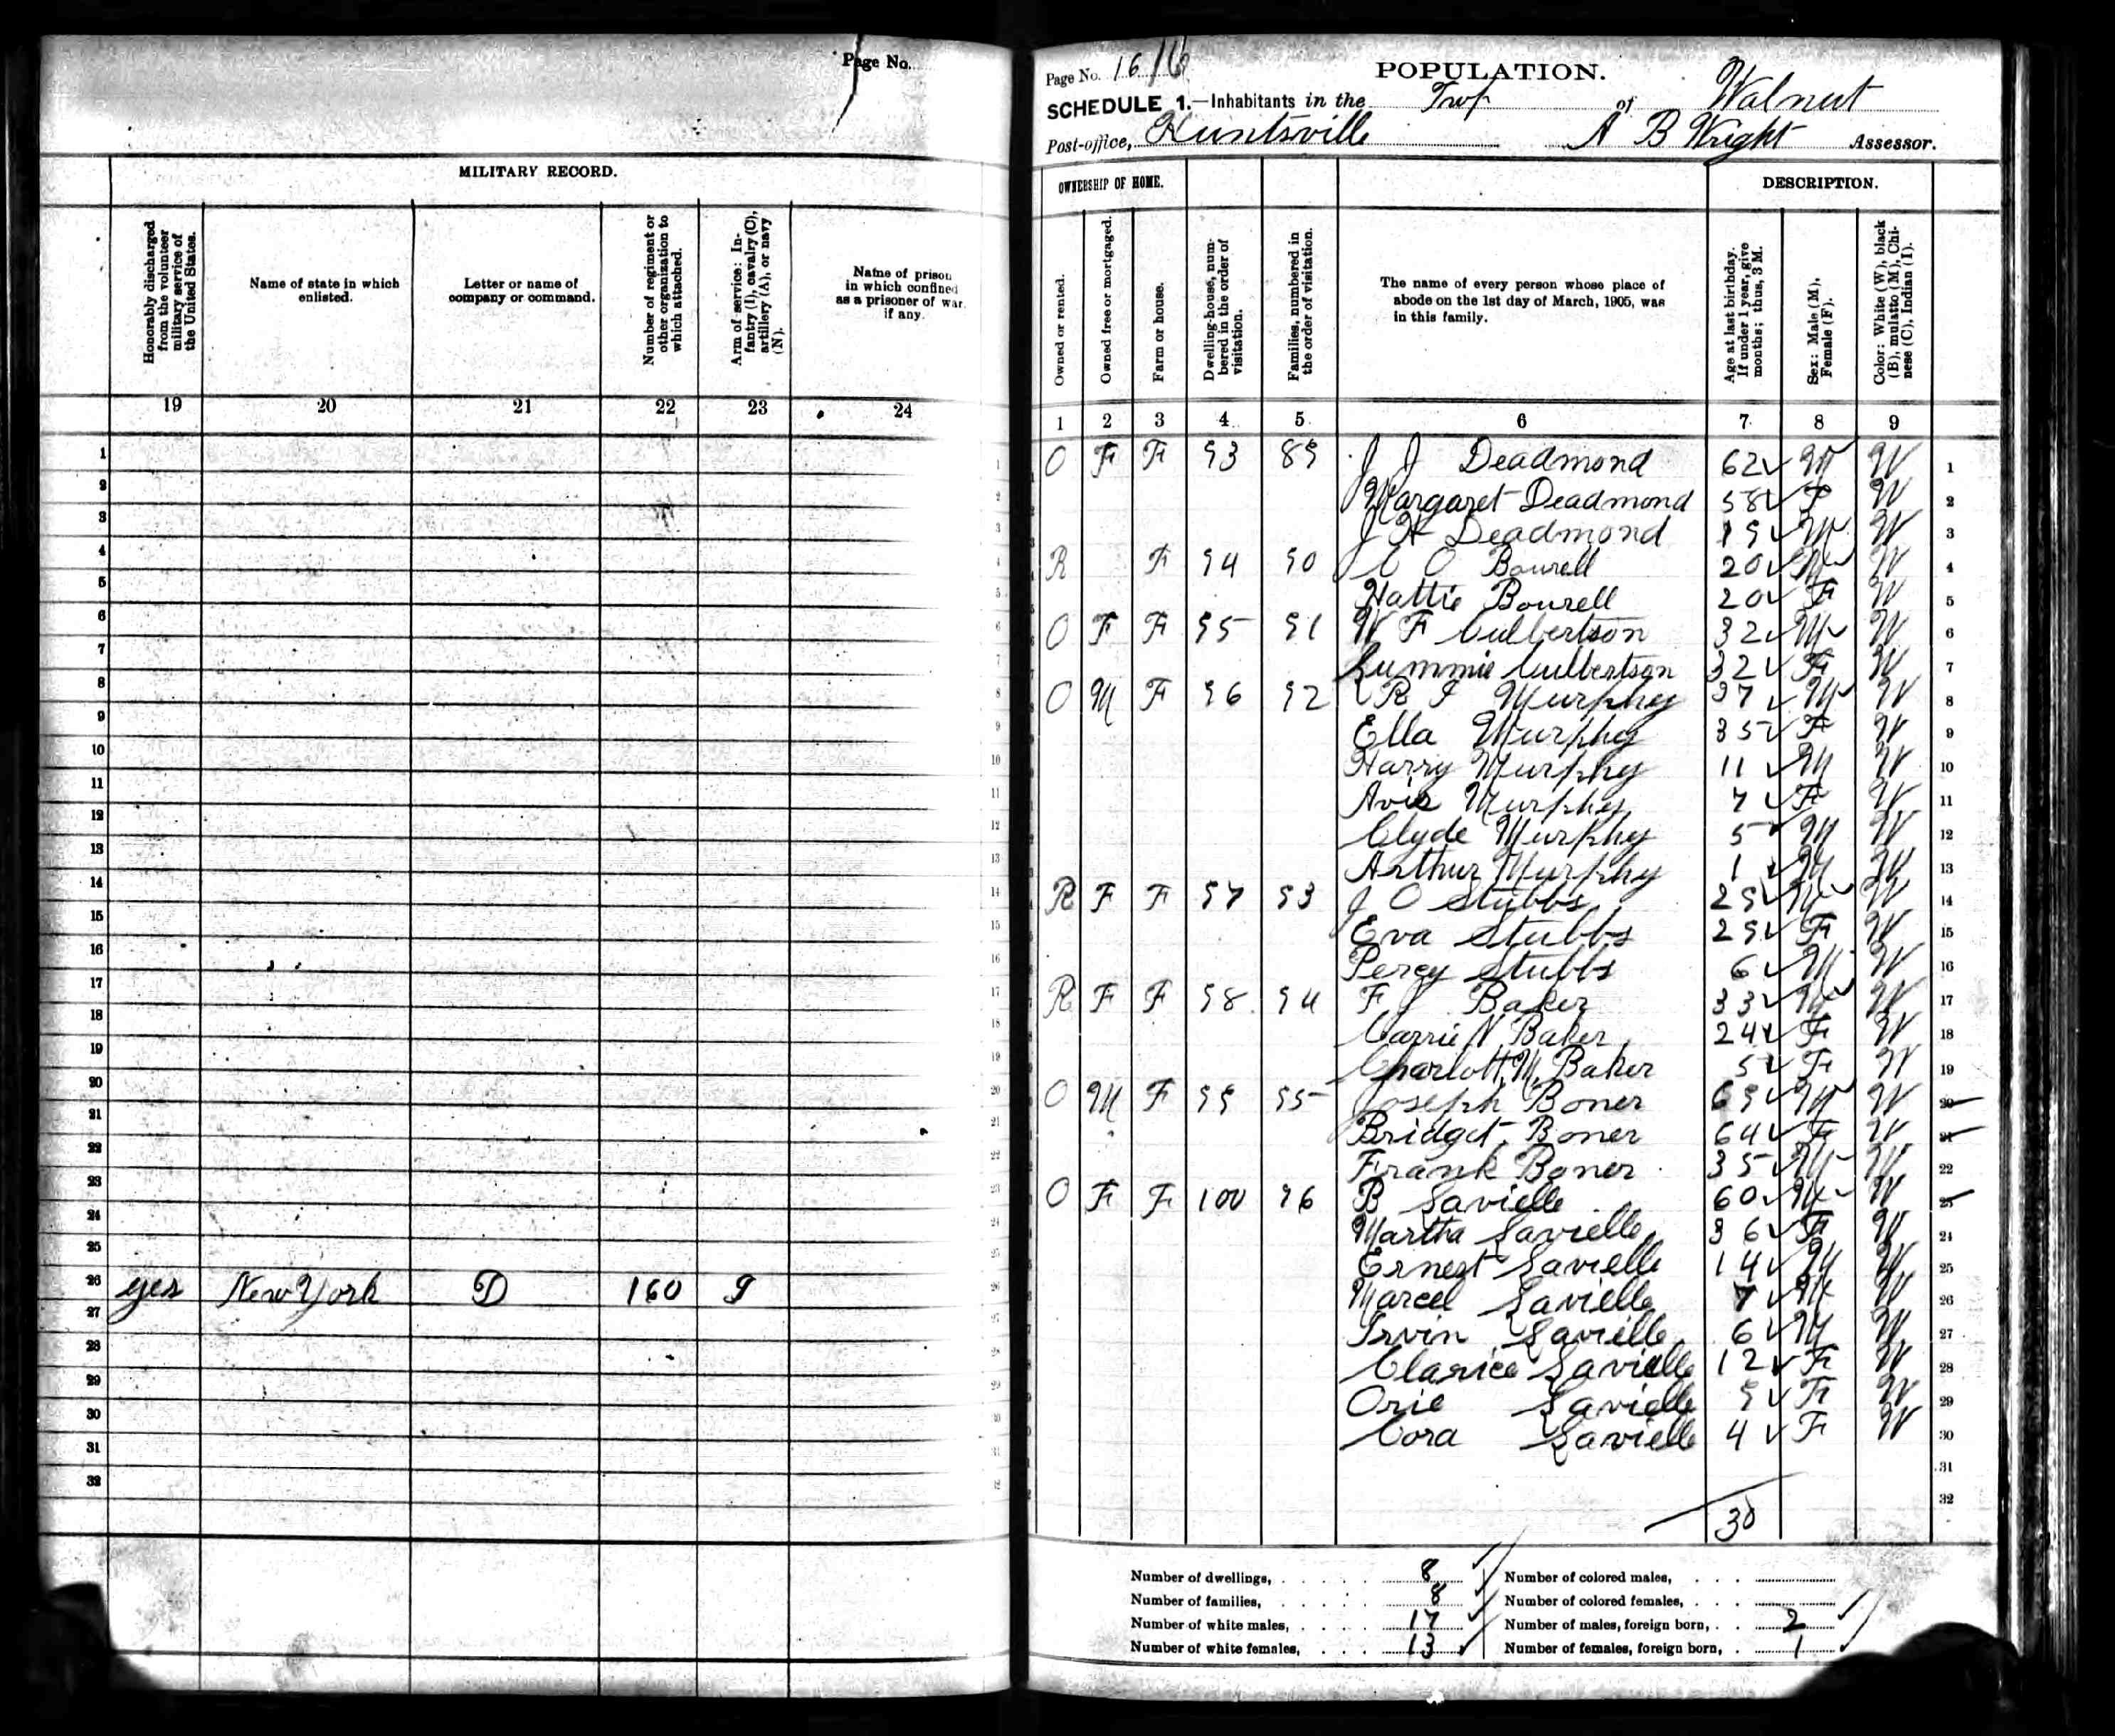 Page No.
MILITARY RECORD.
Honorably discharged from the volunteer military service of the United States.
Name of state in which enlisted.
Letter or name of company or command.
Number of regiment or other organization to which attached.
Arm of service: Infantry (I), cavalry (C), artillery (A), or navy (N).
Name of prison in which confined as a prisoner of war, if any.
19 20 21 22 23 24
1
2
3
4
5
6
7
8
9
10
11
12
13
14
15
16
17
18
19
20
21
22
23
24
25
26 yes New York D 160 I
27
28
29
30
31
32
Page No. 16 16
POPULATION.
SCHEDULE 1.—Inhabitants in the Twp of Walnut
Post-office, Huntsville A B Wright Assessor.
OWNERSHIP OF HOME. DESCRIPTION.
Owned or rented.
Owned free or mortgaged.
Farm or house.
Dwelling-house, numbered in the order of visitation.
Families, numbered in the order of visitation.
The name of every person whose place of abode on the 1st day of March, 1905, was in this family.
Age at last birthday. If under 1 year, give months; thus, 3 M.
Sex: Male (M), Female (F).
Color: White (W), black (B), mulatto (M), Chinese (C), Indian (I).
1 2 3 4 5 6 7 8 9
O F F 93 89 J J Deadmond 62 M W 1
Margaret Deadmond 58 F W 2
J H Deadmond 19 M W 3
R F 94 90 C O Bourell 20 M W 4
Hattie Bourell 20 F W 5
O F F 95 91 W F Culbertson 32 M W 6
Lummie Culbertson 32 F W 7
O M F 96 92 R I Murphy 37 M W 8
Ella Murphy 35 F W 9
Harry Murphy 11 M W 10
Avis Murphy 7 F W 11
Clyde Murphy 5 M W 12
Arthur Murphy 1 M W 13
R F F 97 93 J O Stubbs 29 M W 14
Eva Stubbs 29 F W 15
Percy Stubbs 6 M W 16
R F F 98 94 F J Baker 33 M W 17
Carrie N Baker 24 F W 18
Charlott M Baker 5 F W 19
O M F 99 95 Joseph Boner 69 M W 20
Bridget Boner 64 F W 21
Frank Boner 35 M W 22
O F F 100 96 B Savielle 60 M W 23
Martha Savielle 36 F W 24
Ernest Savielle 14 M W 25
Marcel Savielle 7 M W 26
Irvin Savielle 6 M W 27
Clarice Savielle 12 F W 28
Orie Savielle 9 F W 29
Cora Savielle 4 F W 30
31
32
30
Number of dwellings, 8 Number of colored males,
Number of families, 8 Number of colored females,
Number of white males, 17 Number of males, foreign born, 2
Number of white females, 13 Number of females, foreign born, 1